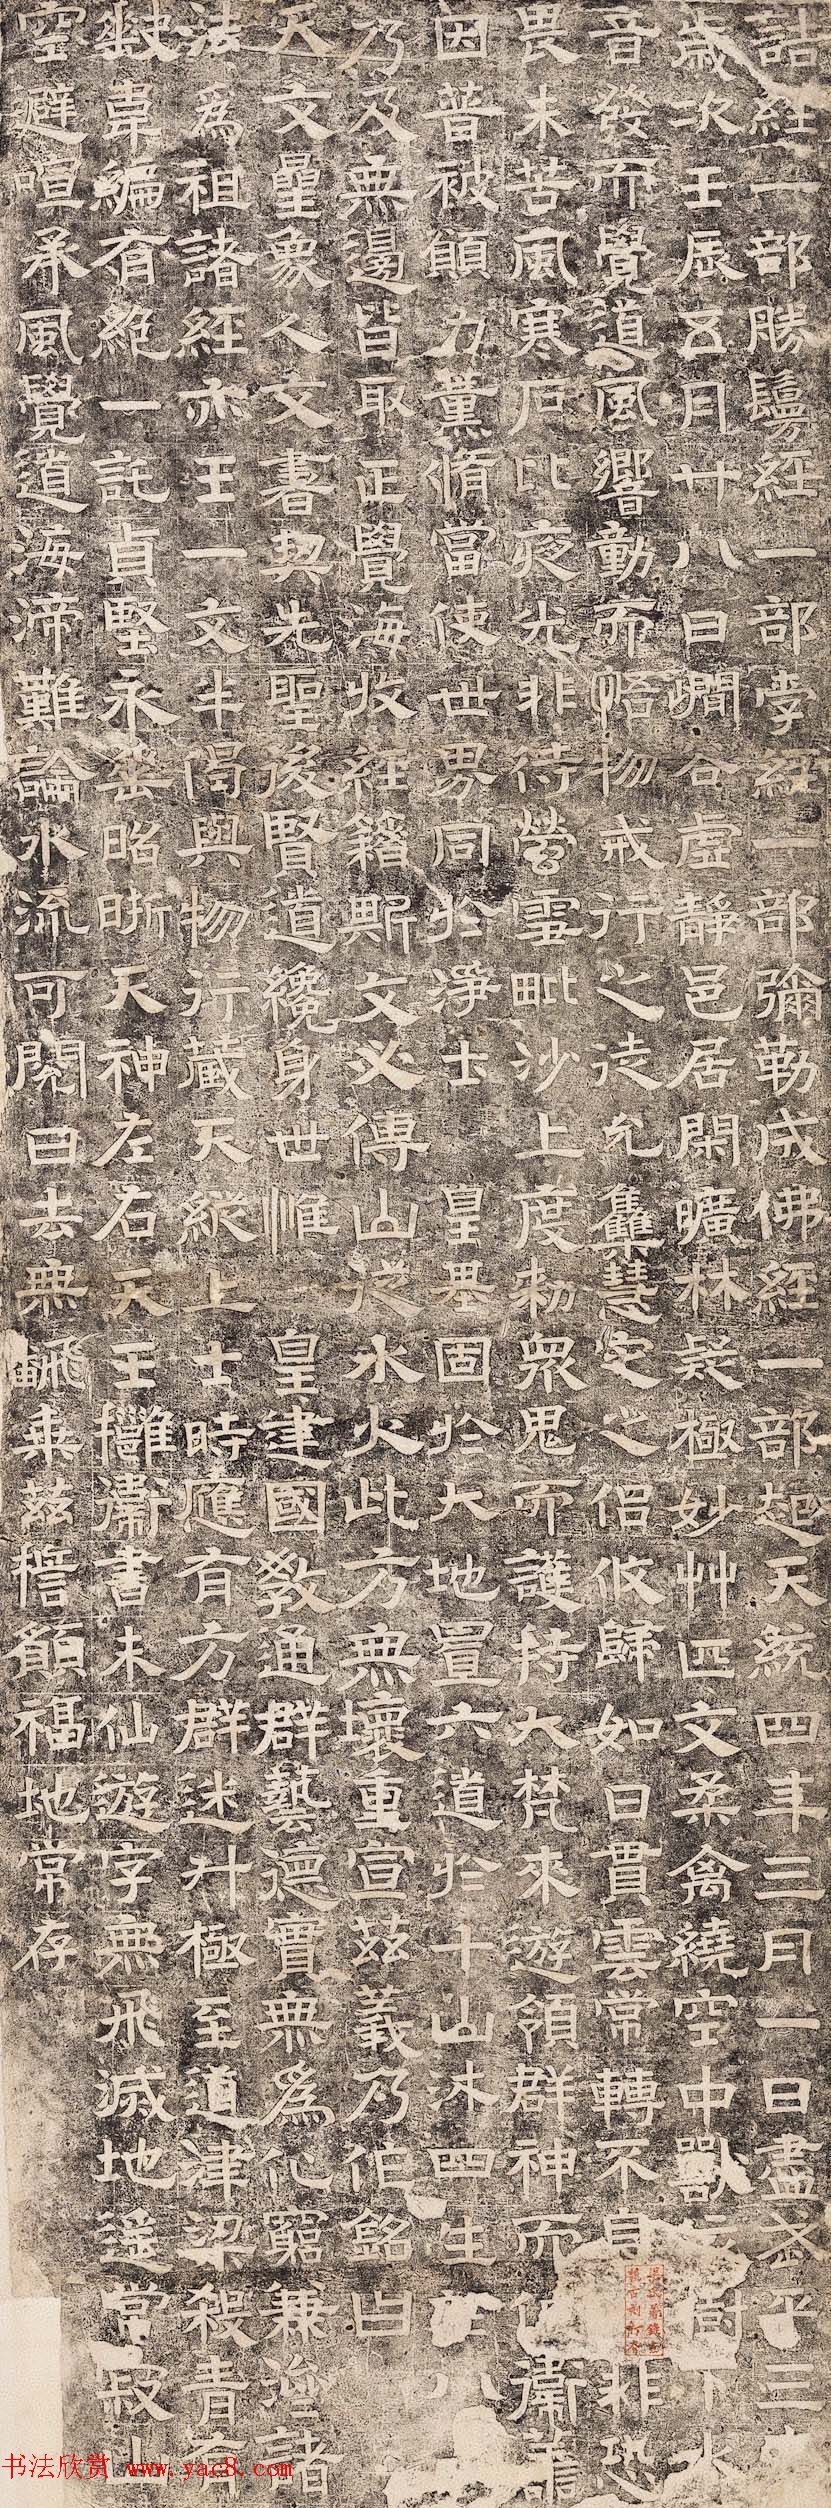 詰經一部勝鬘經一部孛經一部彌勒成佛經一部起天統四年三月一日盡武平三
歲次壬辰五月廿八日嵧谷虛靜邑居閑曠林疑極妙草匹文柔禽繞空中獸依樹下水
音發而覺道風響動而悟物戒行之徒允集慧定之侶攸歸如日貫雲常轉不自非恐
畏未苦風寒石比夜光非待螢雪毗沙上度勑眾鬼而護持大梵來遊領群神而侍衛善
因普被願力薰脩當使世界同於淨土皇基固於大地置六道於十山沐四生於八
乃及無邊皆取正覺海收經籍斯文必傳山從水火此方無壞重宣茲義乃作銘曰
天文壘象人文書契先聖後賢道纔身世惟皇建國教通群藝德實無為化窮兼濟諸
法為祖諸經亦王一文半偈與物行藏天縱上士時應有方群迷升極至道津梁殺青
缺韋編有絕一託貞堅永垂昭晰天神左右天王擁衛書未仙遊字無飛滅地遥常寂山
空避喧承風覺道海渧難論水流可閱日去無飜乘茲誓願福地常存
书法欣赏 www.yac8.com